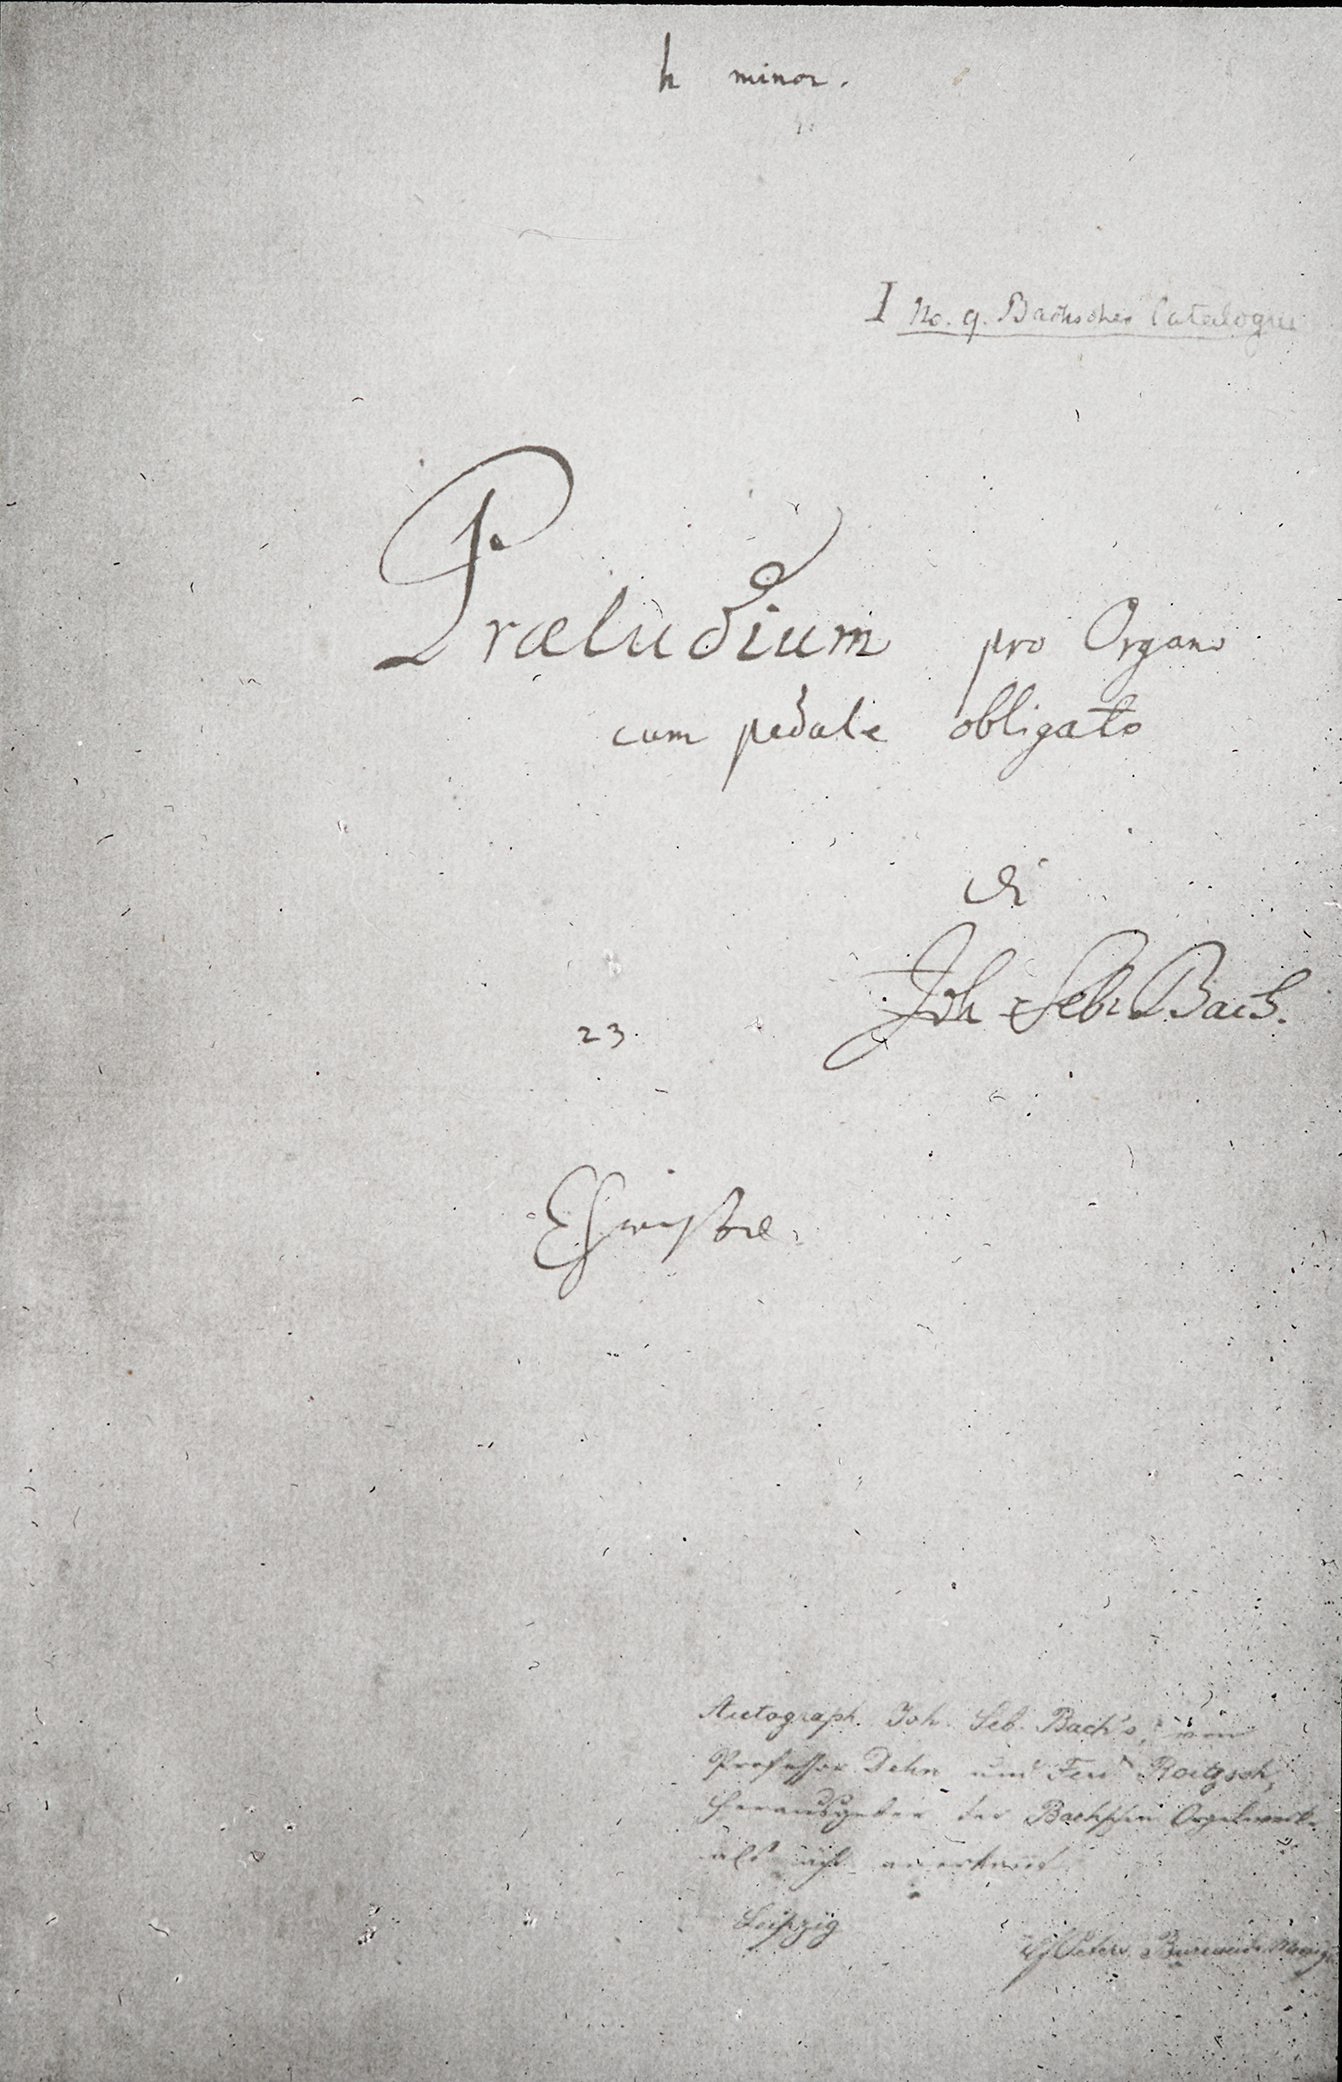 h minor.
I No. 9. Bachscher Catalogue
Præludium pro Organo
cum pedale obligato
di
Joh Seb: Bach.
23.
Autograph Joh. Seb. Bach's, von
Professor Dehn und Ferd Roitzsch,
Herausgeber der Bachschen Orgelwerke
als ächt anerkannt
Leipzig
Peters Bureau de Musique